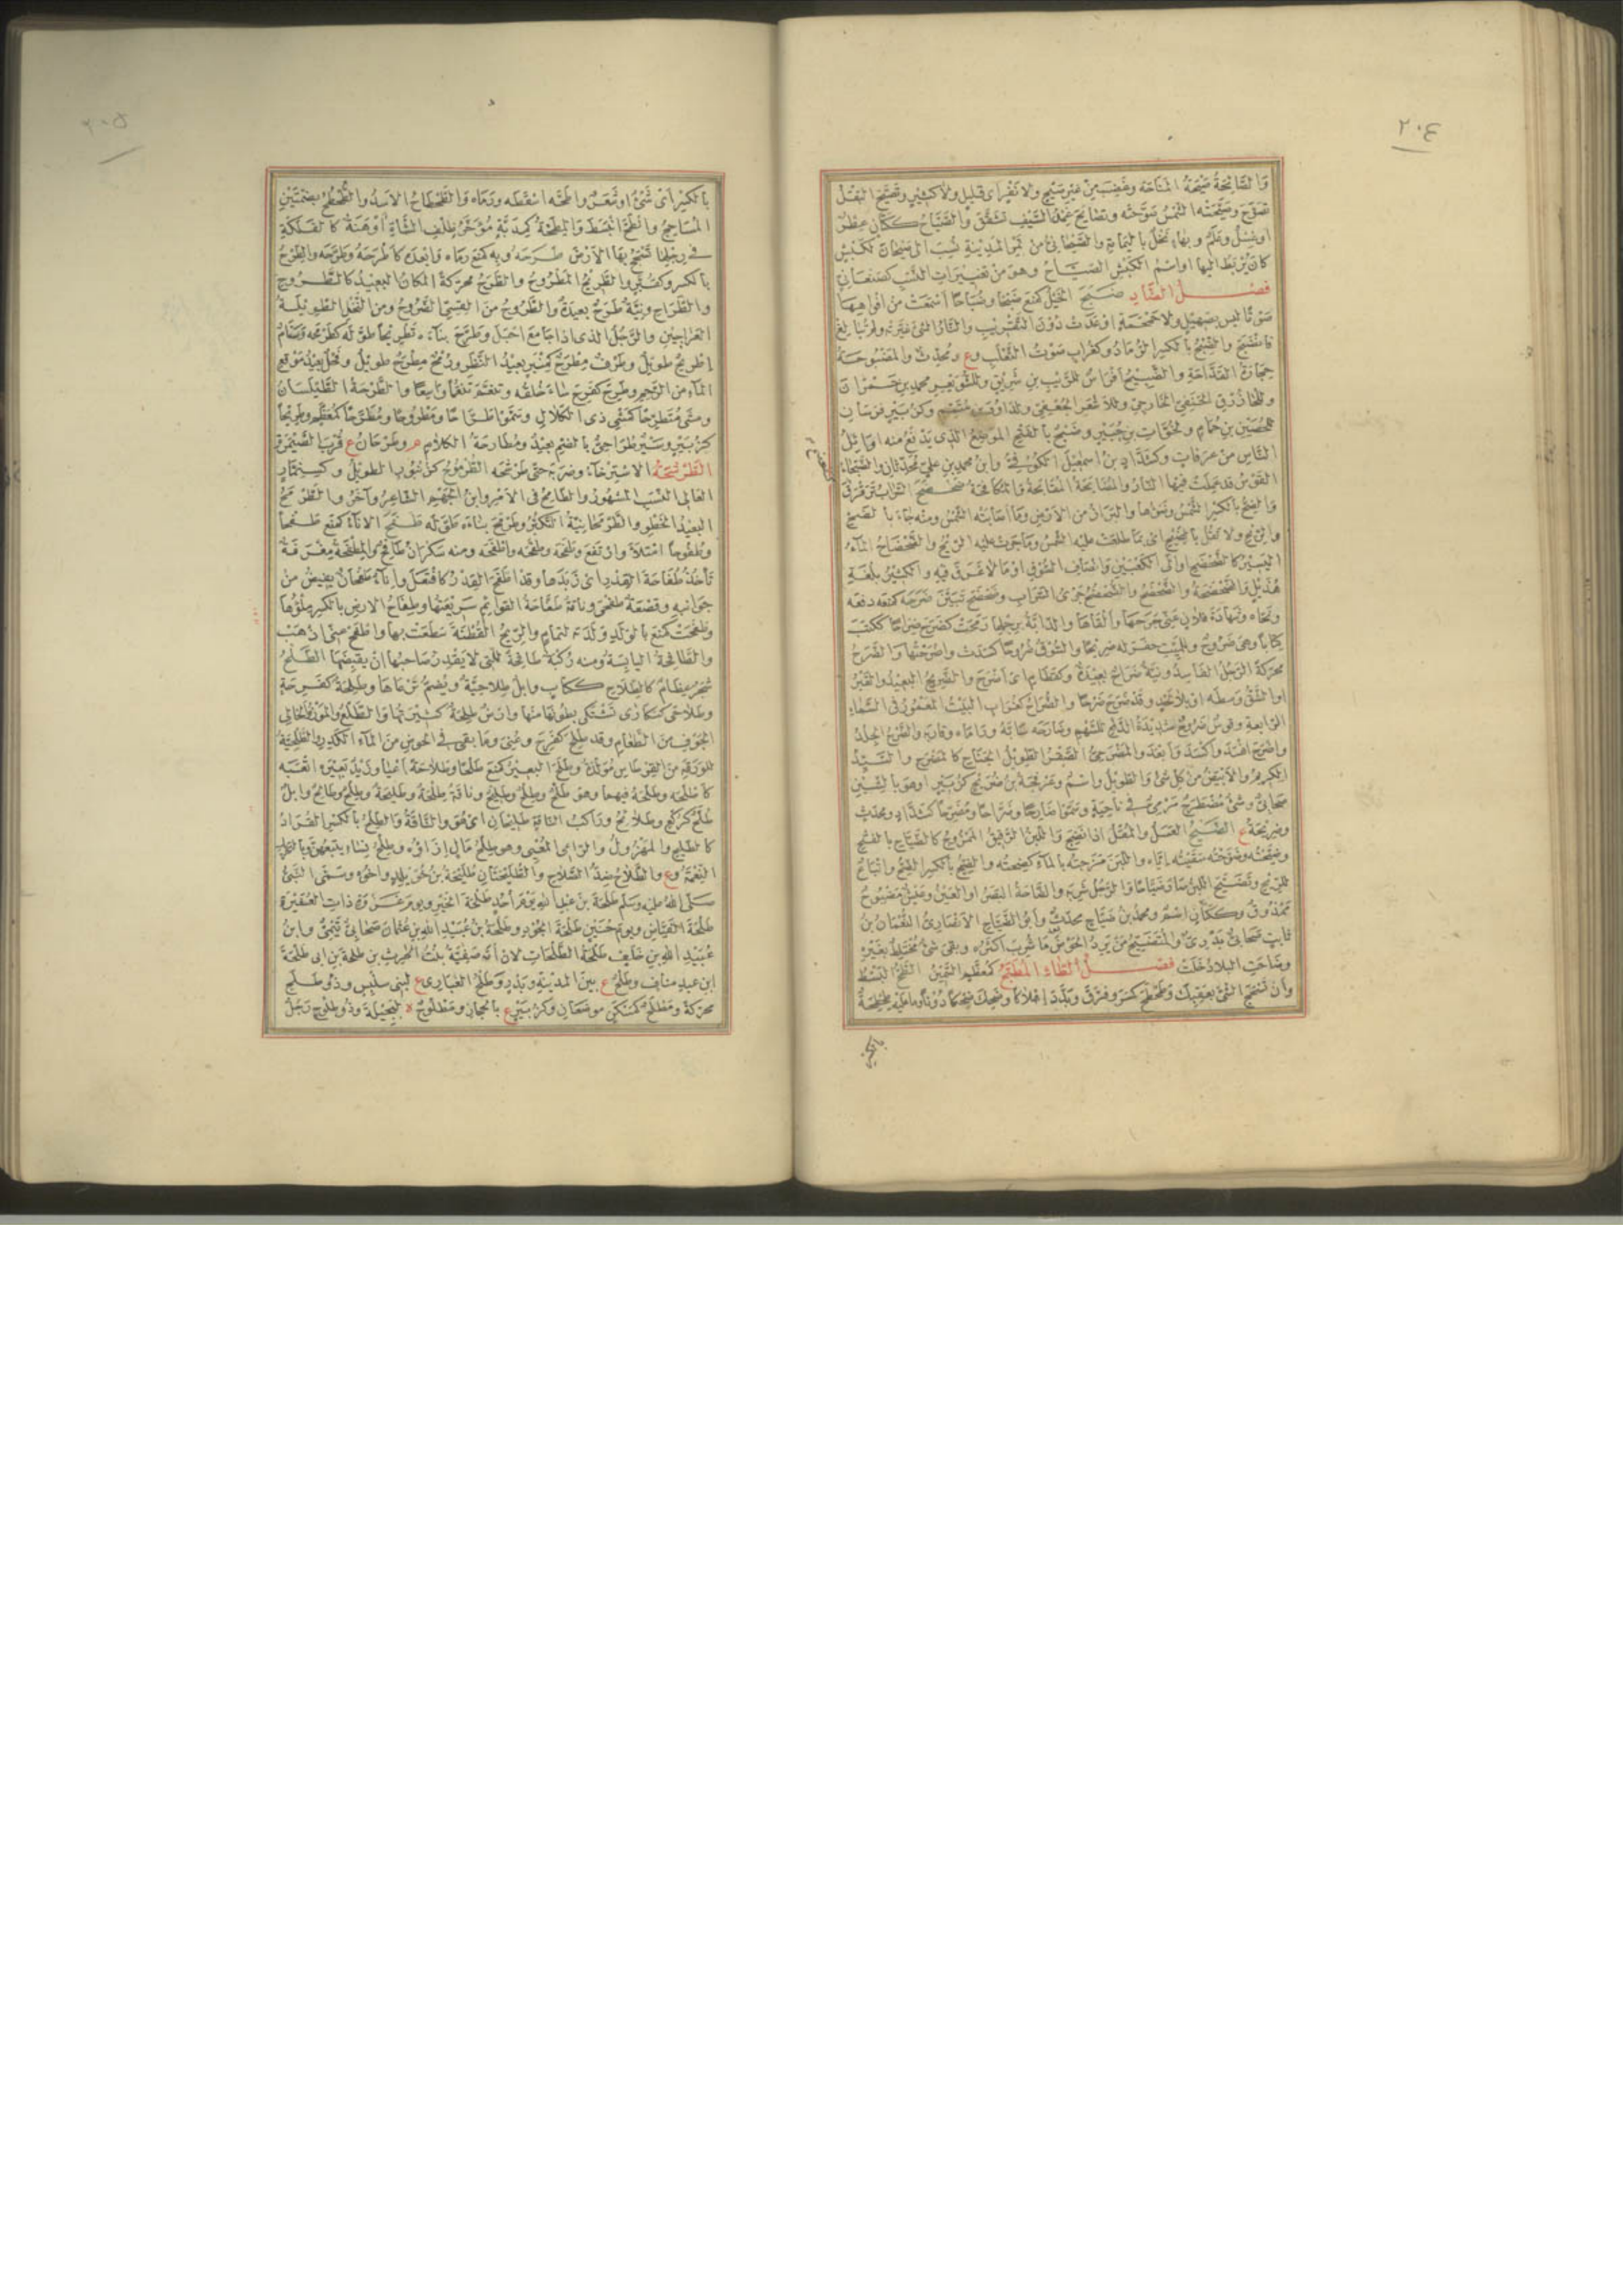 ٢٠٤
والصائحة صيحة المناحة وغضب من غير صيح ولا نفر اى قليل ولا كثير وتصيح البقل
تصوح وصيحته الشمس صوحته وتصايح غمد السيف تشقق والصياح ككتان عطر
او غسل وعلم وبهاء نخل باليمامة والصيحانى من تمر المدينة نسب الى صيحان لكبش
كان يربط اليها او اسم الكبش الصياح وهو من تغييرات النسب كصنعانى
فصل الضاد ضبح الخيل كمنع ضبحا وضباحا اسمعت من افواهها
صوتا ليس بصهيل ولا حمحمة او عدت دون التقريب والنار الشئ غيرته ولم تبالغ
فانضبح والضبح بالكسر الرماد وكغراب صوت الثعلب وع ومحدث والمضبوحة
حجارة القداحة والضبيح افراس للريب بن شريق وللشويعر محمد بن حمران
وللحازوق الحنفى الخارجى وللاسعر الجعفى ولداود بن متمم وكزبير فرسان
للحصين بن حمام ولخوات بن جبير وضبح بالفتح الموضع الذى يدفع منه اوائل
الناس من عرفات وكشداد بن اسمعيل الكوفى وابن محمد بن على محدثان والضبحاء
القوس قد عملت فيها النار والمضابحة المقابحة والمكافحة ضحضح السراب ترقرق
والضح بالكسر الشمس وضوءها والبراز من الارض وما اصابته الشمس ومنه جاء بالضح
والريح ولا تقل بالضيح اى بما طلعت عليه الشمس وما جرت عليه الريح والضحضاح الماء
اليسير كالضحضح او الى الكعبين وانصاف السوق او ما لا غرق فيه والكثير بلغة
هذيل والضحضحة والضحضح والتضحضح جرى السراب وضحضح تبين ضرحه كمنعه دفعه
ونحاه وشهادة فلان عنى جرحها والقاها والدابة برجلها رمحت كضرح ضراحا ككتب
كتابا وهى ضروح وللميت حفر له ضريحا والسوق ضروحا كسدت واضرحتها والضرح
محركة الرجل الفاسد ونية ضرح بعيدة وكقطام اى اضرح والضريح البعيد والقبر
او الشق وسطه او بلا لحد وقد ضرح ضرحا والضراح كغراب البيت المعمور فى السماء
الرابعة وقوس ضروح شديدة الدفع للسهم وضارحه سابه وراماه وقاربه والضرح الجلد
واضرح افسد واكسد وابعد والمضرحى الصقر الطويل الجناح كالمضرح والسيد
الكريم والابيض من كل شئ والطويل واسم وعرفجة بن ضريح كزبير او هو بالشين
صحابى وشئ مضطرح مرمى فى ناحية وسموا ضارحا وضراحا ومضرحا كشداد ومحدث
وضريحة ع الضيح العسل والمقل اذا نضج واللبن الرقيق الممزوج كالضياح بالفتح
وضيحته وضوحته سقيته اياه واللبن مزجته بالماء كضحته والضيح بالكسر الضح واتباع
للريح وتضيح اللبن صار ضياحا والرجل شربه والضاحة البصر او العين وعيش مضيوح
ممذوق وككتان اسم ومحمد بن ضياح محدث وابو الضياح الانصارى النعمان بن
ثابت صحابى بدرى والمتضيح من يرد الحوض بعد ما شرب اكثره وبقى شئ مختلط بغيره
وضاحت البلاد خلت فصل الطاء المطبح كمعظم السمين الطح البسط
وان تسحج الشئ بعقبك وطحطح كسر وفرق وبدد اهلاكا وضحك ضحكا دونا وما عليه طحطحة
بالكسر
٢٠٥
بالكسر اى شئ او شعر واطحه اسقطه ورماه والطحطاح الاسد والطحح بضمتين
المساحج وانطح انبسط والمطحة كمذبة مؤخر ظلف الشاة او هنة كالفلكة
فى رجلها تسحج بها الارض طرحه وبه كمنع رماه وابعده كاطرحه وطرحه والطرح
بالكسر وكقبر والطريح المطروح والطرح محركة المكان البعيد كالطروح
والطراح ونية طرح بعيدة والطروح من القسى الضروح ومن النخل الطويلة
العراجين والرجل الذى اذا جامع احبل وطرح بناءه تطريحا طوله كطرمحه وسنام
اطريح طويل وطرف مطرح كمنبر بعيد النظر ورمح مطرح طويل وفحل بعيد موقع
الماء من الرحم وطرح كفرح ساء خلقه وتنعم تنعما واسعا والطرحة الطيلسان
ومشى متطرحا كمشى ذى الكلال وسموا طراحا ومطروحا ومطرحا كمعظم وطريحا
كزبير وسير طراحى بالضم بعيد ومطارحة الكلام م وطرحان ع قرب الصيمرة
الطرشحة الاسترخاء وضربه حتى طرشحه الطرموح كزنبور الطويل وكسنمار
العالى النسب المشهور والطامح فى الامر وابن الجهم الشاعر وآخر والطرمح
البعيد الخطو والطرمحانية التكبر وطرمح بناءه طوله طفح الاناء كمنع طفحا
وطفوحا امتلأ وارتفع وطفحه وطفحه واطفحه ومنه سكران طافح والمطفحة مغرفة
تأخذ طفاحة القدر اى زبدها وقد اطفح القدر كافتعل واناء طفحان يفيض من
جوانبه وقصعة طفحى وناقة طفاحة القوائم سريعتها وطفاح الارض بالكسر ملؤها
وطفحت كمنع بالولد ولدته لتمام والريح القطنة سطعت بها واطفح عنى اذهب
والطافحة اليابسة ومنه ركبة طافحة للتى لا يقدر صاحبها ان يقبضها الطلح
شجر عظام كالطلاح ككتاب وابل طلاحية ويضم ترعاها وطلحة كفرحة
وطلاحى كحبارى تشتكى بطونها منها وارض طلحة كثيرتها والطلع والموز والخالى
الجوف من الطعام وقد طلح كفرح وعنى وما بقى فى الحوض من الماء الكدر والطلحية
للورقة من القرطاس مولدة وطلح البعير كمنع طلحا وطلاحة اعيا وزيد بعيره اتعبه
كاطلحه وطلحه فيهما وهو طلح وطلح وطليح وناقة طلحة وطليحة وطلح وطالح وابل
طلح كركع وطلائح وراكب الناقة طليحان اى هو والناقة والطلح بالكسر القراد
كالطليح والمهزول والراعى المعيى وهو طلح مال ازاؤه وطلح نساء يتبعهن وبالتحريك
النعمة وع والطلاح ضد الصلاح والطليحتان طليحة بن خويلد واخوه وسمى النبى
صلى الله عليه وسلم طلحة بن عبيد الله يوم احد طلحة الخير ويوم غزوة ذات العشيرة
طلحة الفياض ويوم حنين طلحة الجود وطلحة بن عبيد الله بن عثمان صحابى تيمى وابن
عبيد الله بن خلف طلحة الطلحات لان امه صفية بنت الحرث بن طلحة بن ابى طلحة
ابن عبد مناف وطلح ع بين المدينة وبدر وطلح الغبارى ع لبنى سنبس وذو طلح
محركة ومطلح كمسكن موضعان وكزبير ع بالحجاز ومطلوح ة لبجيلة وذو طلوح رجل